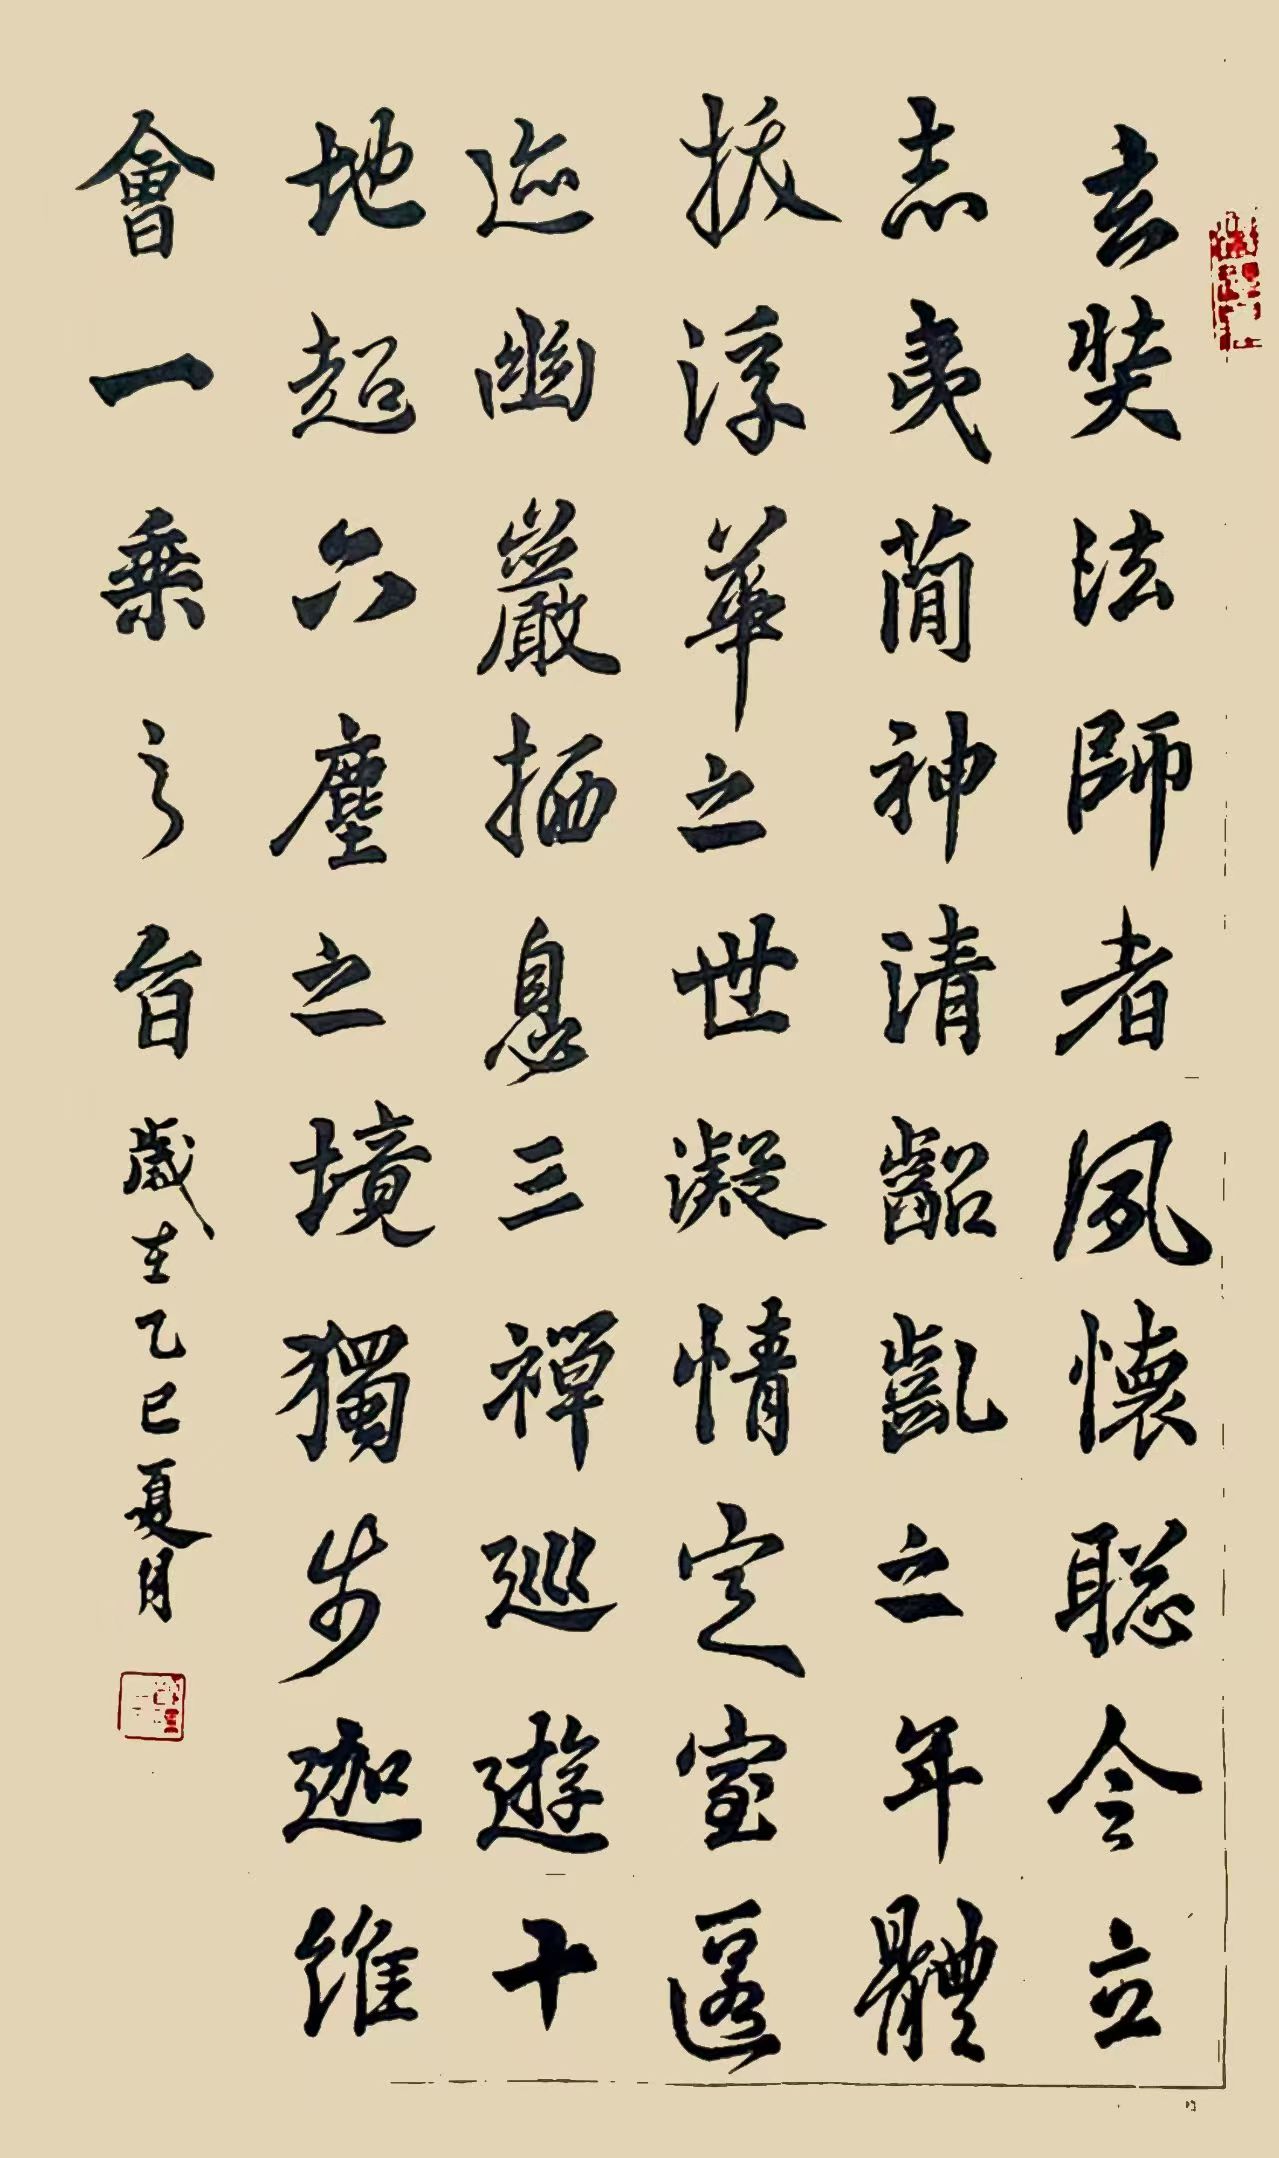 玄奘法師者夙懷聡令立
志夷蕳神清齠齓之年體
拔浮華之世凝情定室匿
迹幽巖栖息三禪巡遊十
地超六塵之境獨步迦維
會一乘之旨歲在乙巳夏月